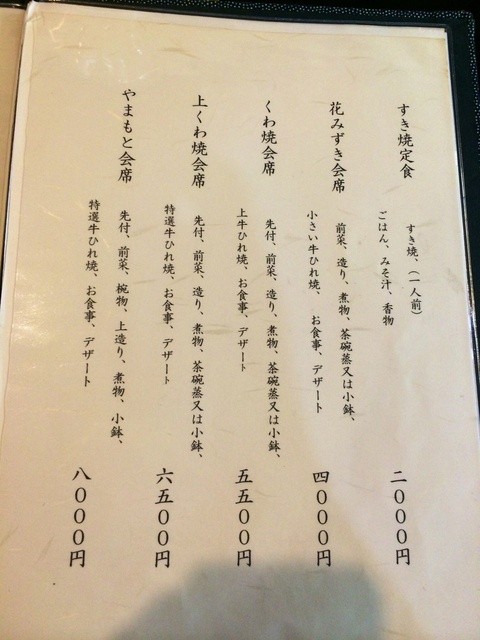 すき焼定食
すき焼、（一人前）
ごはん、みそ汁、香物
二000円
花みずき会席
前菜、造り、煮物、茶碗蒸又は小鉢、
小さい牛ひれ焼、お食事、デザート
四000円
くわ焼会席
先付、前菜、造り、煮物、茶碗蒸又は小鉢、
上牛ひれ焼、お食事、デザート
五五00円
上くわ焼会席
先付、前菜、造り、煮物、茶碗蒸又は小鉢、
特選牛ひれ焼、お食事、デザート
六五00円
やまもと会席
先付、前菜、椀物、上造り、煮物、小鉢、
特選牛ひれ焼、お食事、デザート
八000円